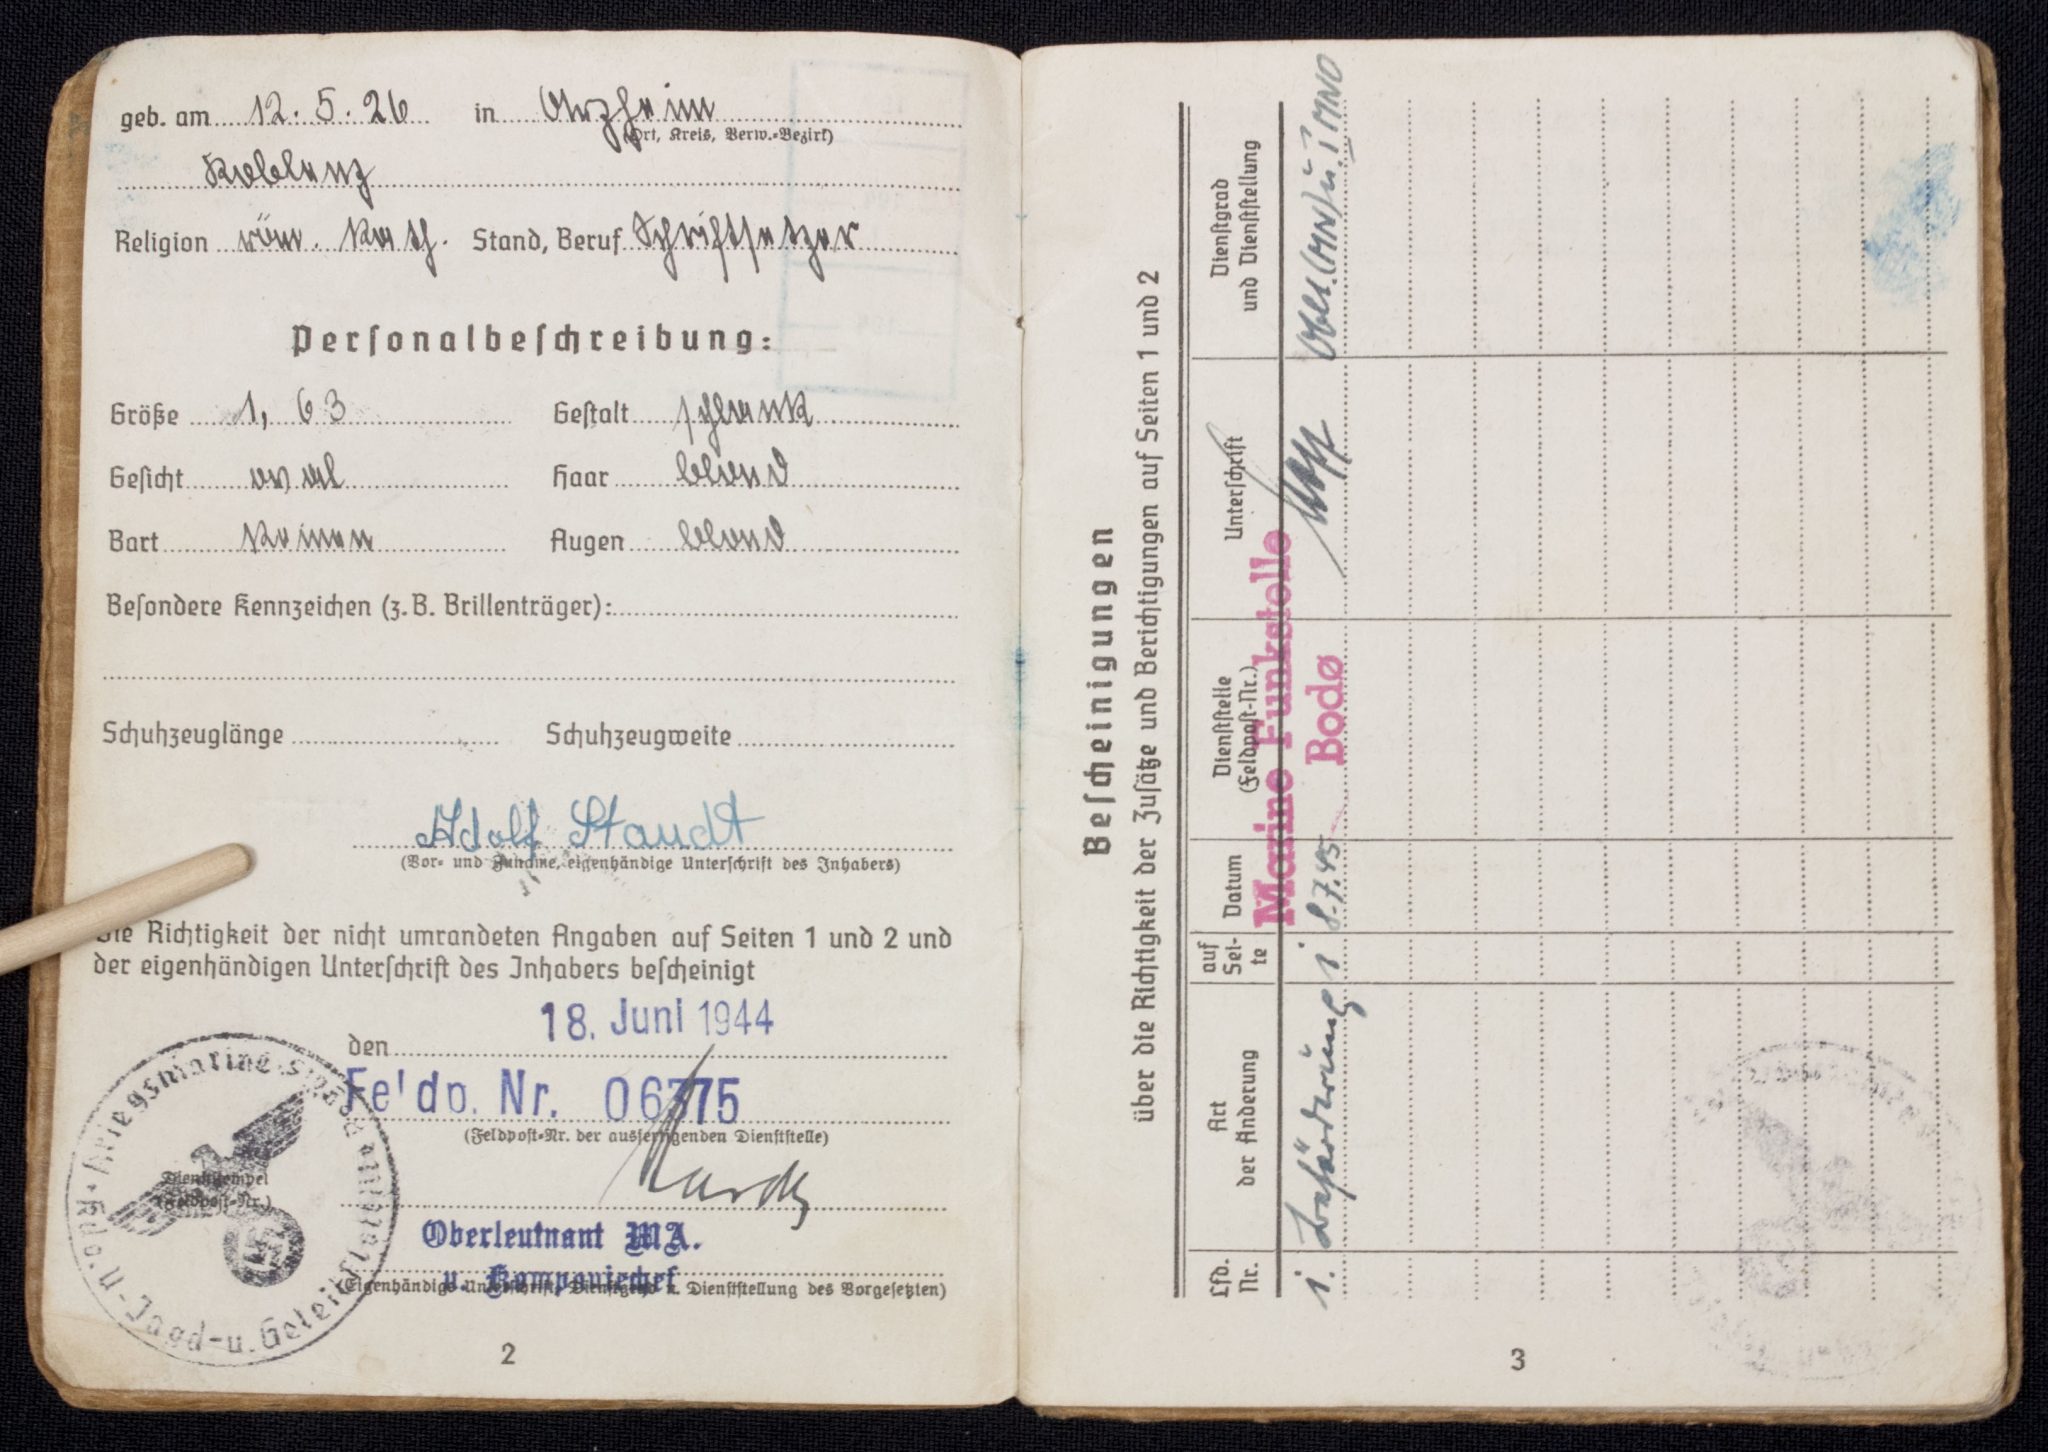 geb. am 12. 5. 26 in Arzheim
(Ort, Kreis, Verw.-Bezirk)
Koblenz
Religion röm. Kath. Stand, Beruf Schriftsetzer
Personalbeschreibung:
Größe 1,63 Gestalt schlank
Gesicht oval Haar blond
Bart Keinen Augen blond
Besondere Kennzeichen (z. B. Brillenträger):
Schuhzeuglänge Schuhzeugweite
Adolf Staudt
(Vor- und Zuname, eigenhändige Unterschrift des Inhabers)
Die Richtigkeit der nicht umrandeten Angaben auf Seiten 1 und 2 und
der eigenhändigen Unterschrift des Inhabers bescheinigt
den 18. Juni 1944
Feldp. Nr. 06775
(Feldpost-Nr. der ausfertigenden Dienststelle)
Dienststempel
(Feldpost-Nr.)
Oberleutnant MA.
u. Kompaniechef
(Eigenhändige Unterschrift, Dienstgrad u. Dienststellung des Vorgesetzten)
Kriegsmarine
U-Jagd- u. Geleit
2
Bescheinigungen
über die Richtigkeit der Zusätze und Berichtigungen auf Seiten 1 und 2
Lfd. Nr.
Art der Änderung
auf Sei-te
Datum
Dienststelle (Feldpost-Nr.)
Unterschrift
Dienstgrad und Dienststellung
1. Beförderung 1 8.7.45
Marine Funkstelle
Bodø
Oblt. (MN) u.
3